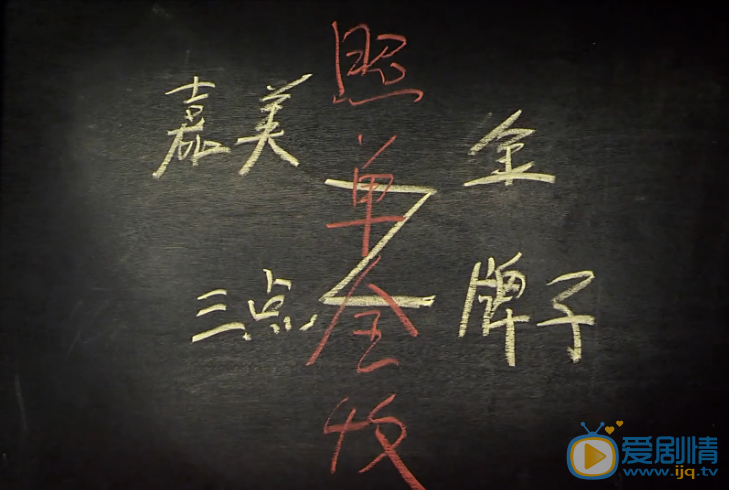 嘉美
金
三点
牌子
Z
照单全收
爱剧情
www.ijq.tv